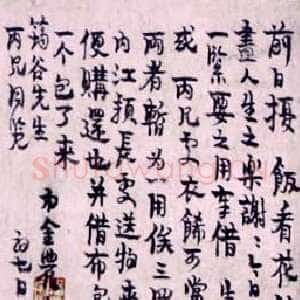 前日擾飯看花
盡人生之樂謝〻今日
一緊要之用幸借
或丙兄更衣飾可當
兩者暫為一用俟三四
内江項長更送物来
便購還也并借布包
一个包了来
筠谷先生
丙兄同覽
弟金農
初七日